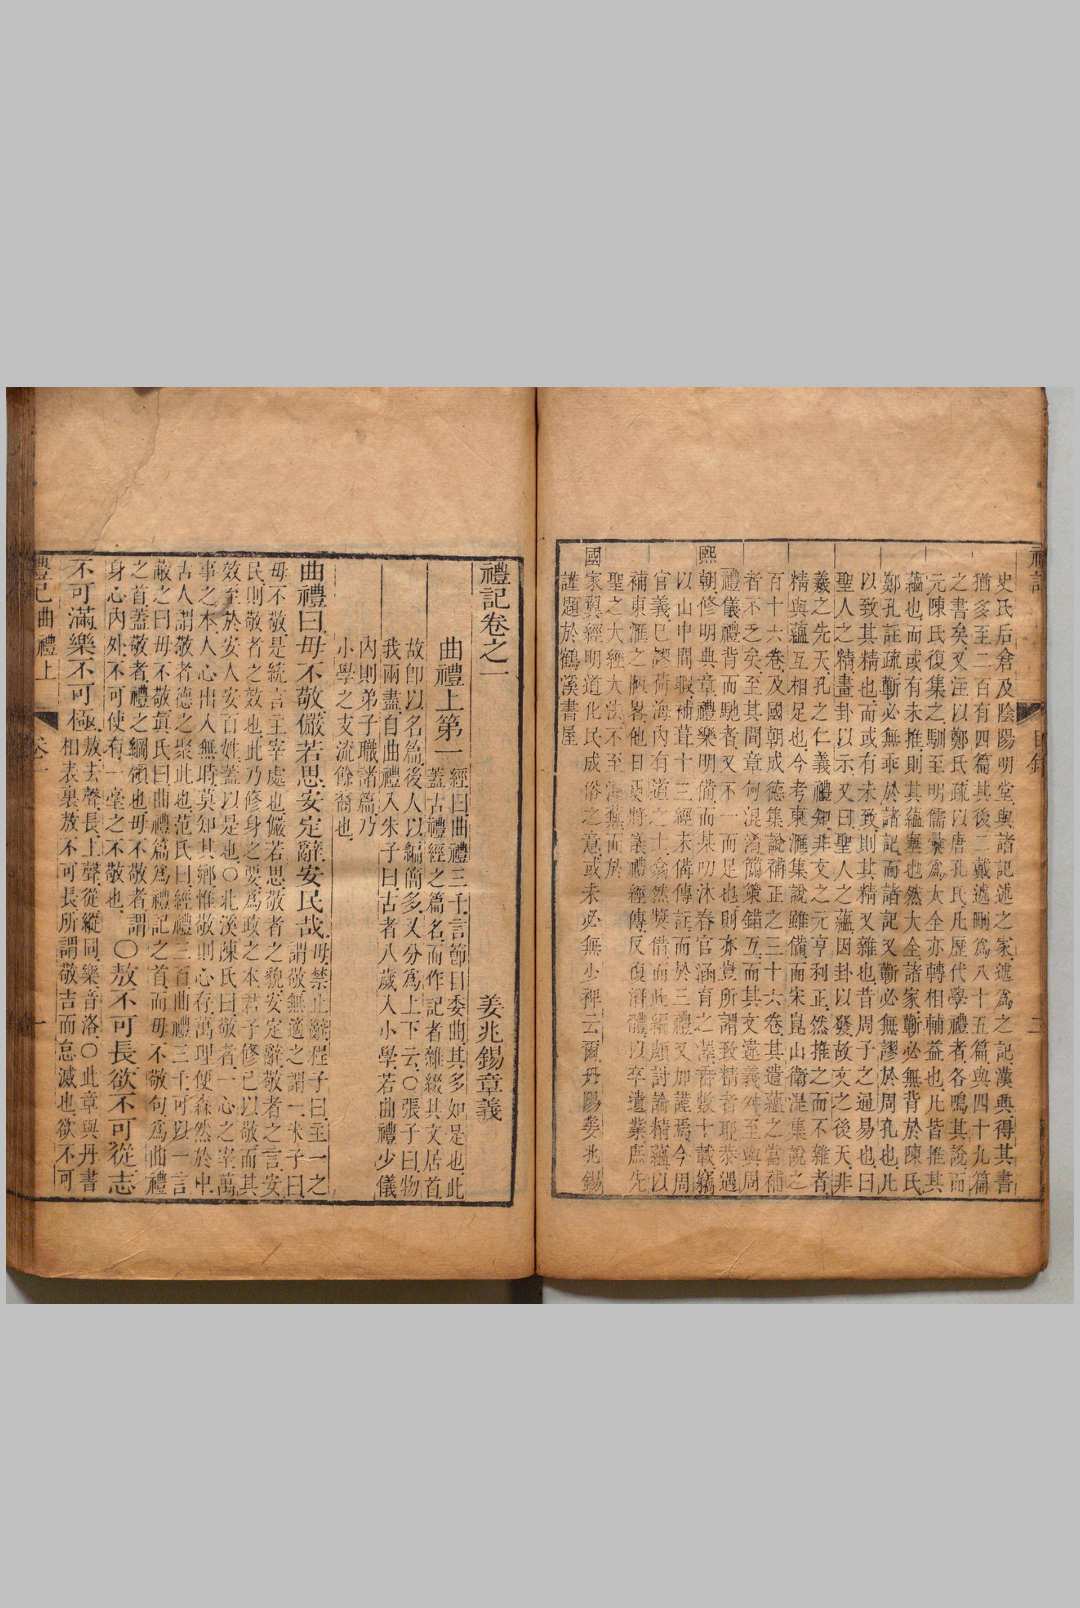 史氏后倉及陰陽明堂與諸記述之家遞為之記漢興得其書
猶多至二百有四篇其後二戴遞刪為八十五篇與四十九篇
之書矣又注以鄭氏疏以唐孔氏凡歷代學禮者各鳴其說而
元陳氏復集之馴至明儒彙為大全亦轉相輔益也凡皆推其
蘊也而或有未推則其蘊棄也然大全諸家蘄必無背於陳氏
鄭孔註疏蘄必無乖於諸記而諸記又蘄必無謬於周孔也凡
以致其精也而或有未致則其精又雜也昔周子之通易也曰
聖人之精畫卦以示又曰聖人之蘊因卦以發故文之後天非
羲之先天孔之仁義禮知非文之元亨利正然推之而不雜者
精與蘊互相足也今考東滙集說雖備而宋崑山衛湜集說之
百十六卷及國朝成德集說補正之三十六卷其遺蘊之當補
者不乏矣至其間章句混淆簡策錯互而其文違義舛至與周
禮儀禮背而馳者又不一而足也則亦豈所謂致精者耶恭遇
熙朝修明典章禮樂明備而某叨沐春官涵育之澤者數十載竊
以山中間暇補葺十三經未備傳註而於三禮又加謹焉今周
官義已謬荷海內有道之士翕然獎借而此編頗討論精蘊以
補東滙之缺畧他日更將議禮經傳反復滸禮以卒遺業庶先
聖之大經大法不至湮蕪而於
國家翼經明道化民成俗之意或未必無少裨云爾丹陽姜兆錫
謹題於鶴溪書屋
禮記卷之一
姜兆錫章義
曲禮上第一
經曰曲禮三千言節目委曲其多如是也此
蓋古禮經之篇名而作記者雜綴其文居首
故即以名篇後人以編簡多又分為上下云〇張子曰物
我兩盡自曲禮入朱子曰古者八歲入小學若曲禮少儀
內則弟子職諸篇乃
小學之支流餘裔也
曲禮曰毋不敬儼若思安定辭安民哉
毋禁止辭程子曰主一之
謂敬無適之謂一朱子曰
毋不敬是統言主宰處也儼若思敬者之貌安定辭敬者之言安
民則敬者之效也此乃修身之要為政之本君子修己以敬而其
效至於安人安百姓蓋以是也〇北溪陳氏曰敬者一心之宰萬
事之本人心出入無時莫知其鄉惟敬則心存萬理便森然於中
古人謂敬者德之聚此也范氏曰經禮三百曲禮三千可以一言
蔽之曰毋不敬真氏曰曲禮篇為禮記之首而毋不敬句為曲禮
之首蓋敬者禮之綱領也毋不敬者謂
身心內外不可使有一毫之不敬也
〇敖不可長欲不可從志
不可滿樂不可極
敖去聲長上聲從縱同樂音洛〇此章與丹書
相表裏敖不可長所謂敬吉而怠滅也欲不可
禮記曲禮上
卷一
一